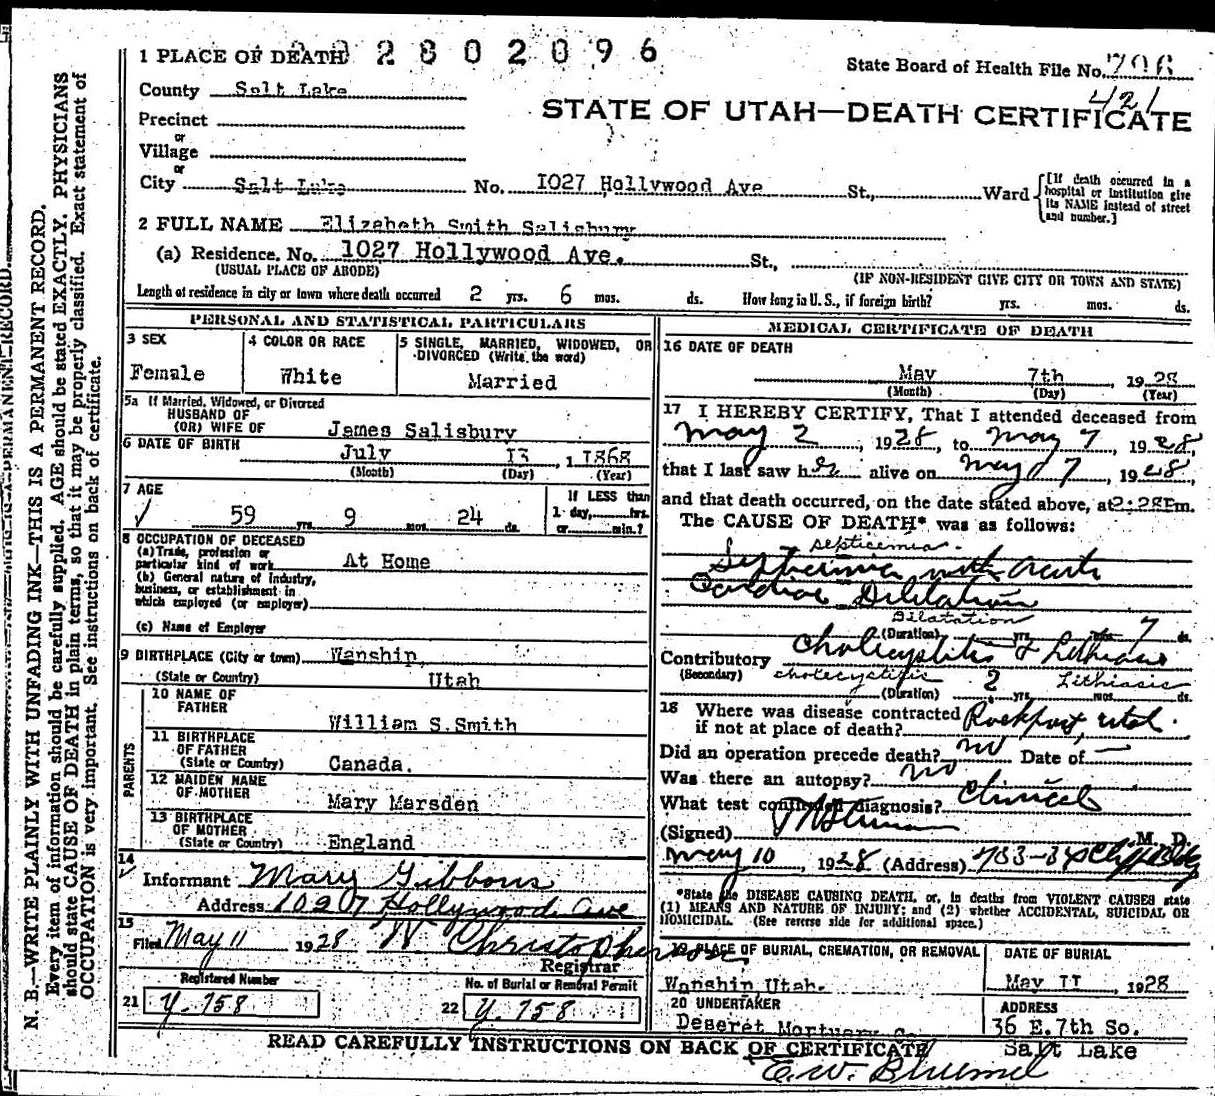 N. B.—WRITE PLAINLY WITH UNFADING INK—THIS IS A PERMANENT RECORD.
Every item of information should be carefully supplied. AGE should be stated EXACTLY. PHYSICIANS
should state CAUSE OF DEATH in plain terms, so that it may be properly classified. Exact statement of
OCCUPATION is very important. See instructions on back of certificate.
1 PLACE OF DEATH 2802096
State Board of Health File No. 706
421
County Salt Lake
STATE OF UTAH—DEATH CERTIFICATE
Precinct
or
Village
or
City Salt Lake No. 1027 Hollywood Ave St., Ward
[If death occurred in a
hospital or institution give
its NAME instead of street
and number.]
2 FULL NAME Elizabeth Smith Salisbury
(a) Residence. No. 1027 Hollywood Ave. St.,
(USUAL PLACE OF ABODE) (IF NON-RESIDENT GIVE CITY OR TOWN AND STATE)
Length of residence in city or town where death occurred 2 yrs. 6 mos. ds. How long in U. S., if foreign birth? yrs. mos. ds.
PERSONAL AND STATISTICAL PARTICULARS
3 SEX 4 COLOR OR RACE 5 SINGLE, MARRIED, WIDOWED, OR
DIVORCED (Write the word)
Female White Married
5a If Married, Widowed, or Divorced
HUSBAND OF
(OR) WIFE OF James Salisbury
6 DATE OF BIRTH July 13, 1868
(Month) (Day) (Year)
7 AGE If LESS than
59 yrs. 9 mos. 24 ds. 1 day, hrs.
or min.?
8 OCCUPATION OF DECEASED
(a) Trade, profession or
particular kind of work At Home
(b) General nature of industry,
business, or establishment in
which employed (or employer)
(c) Name of Employer
9 BIRTHPLACE (City or town) Wanship,
(State or Country) Utah
PARENTS
10 NAME OF
FATHER William S. Smith
11 BIRTHPLACE
OF FATHER
(State or Country) Canada.
12 MAIDEN NAME
OF MOTHER Mary Marsden
13 BIRTHPLACE
OF MOTHER
(State or Country) England
14
Informant Mary Gibbons
Address 1027 Hollywood Ave
15
Filed May 11 1928 W Christopherson
Registrar
Registered Number No. of Burial or Removal Permit
21 Y. 758 22 Y. 758
MEDICAL CERTIFICATE OF DEATH
16 DATE OF DEATH
May 7th, 1928
(Month) (Day) (Year)
17 I HEREBY CERTIFY, That I attended deceased from
May 2, 1928, to May 7, 1928,
that I last saw her alive on May 7, 1928,
and that death occurred, on the date stated above, at 2:28Pm.
The CAUSE OF DEATH* was as follows:
septicemia.
Septicemia with acute
Cardiac Dilitation
Dilatation
(Duration) yrs. mos. 7 ds.
Contributory Cholicystitis & Lithiasis
(Secondary) cholecystitis Lithiasis
(Duration) 2 yrs. mos. ds.
18 Where was disease contracted
if not at place of death? Rockport, Utah.
Did an operation precede death? no Date of —
Was there an autopsy? no
What test confirmed diagnosis? Clinical
(Signed) M. D.
May 10, 1928 (Address) Clift Bldg
*State the DISEASE CAUSING DEATH, or, in deaths from VIOLENT CAUSES state
(1) MEANS AND NATURE OF INJURY; and (2) whether ACCIDENTAL, SUICIDAL OR
HOMICIDAL. (See reverse side for additional space.)
19 PLACE OF BURIAL, CREMATION, OR REMOVAL DATE OF BURIAL
Wanship Utah. May 11, 1928
20 UNDERTAKER ADDRESS
Deseret Mortuary Co. 36 E. 7th So.
Salt Lake
READ CAREFULLY INSTRUCTIONS ON BACK OF CERTIFICATE
E. W. Bluemel